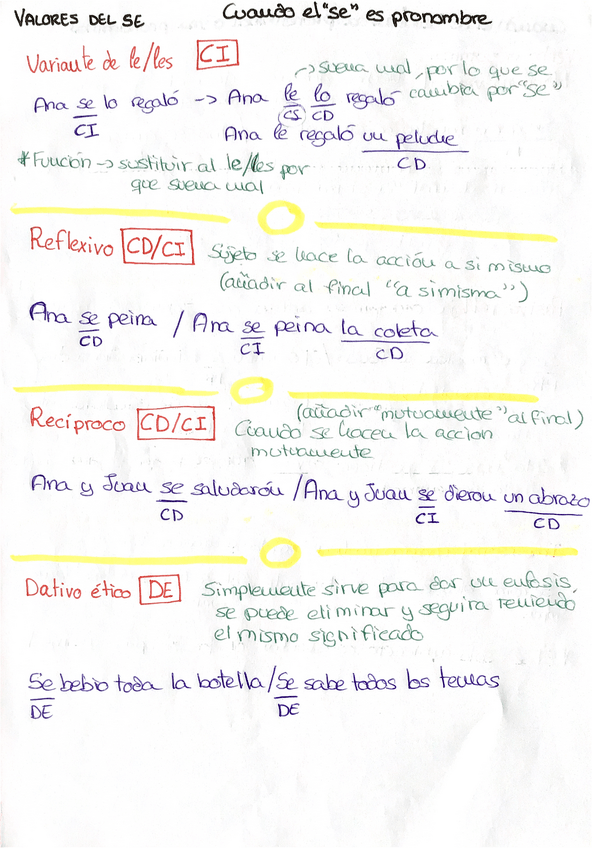 VALORES DEL SE
Cuando el "se" es pronombre
Variante de le/les CI
-> suena mal, por lo que se
cambia por "se"
Ana se lo regaló -> Ana le lo regaló
CI
CI CD
Ana le regaló un peluche
CD
*Función -> sustituir al le/les por
que suena mal
Reflexivo CD/CI
Sujeto se hace la acción a si mismo
(añadir al final "a simisma")
Ana se peina / Ana se peina la coleta
CD
CI
CD
Recíproco CD/CI
(añadir "mutuamente" al final)
Cuando se hacen la accion
mutuamente
Ana y Juan se saludarón / Ana y Juan se dieron un abrazo
CD
CI
CD
Dativo ético DE
Simplemente sirve para dar un enfasis,
se puede eliminar y seguira teniendo
el mismo significado
Se bebio toda la botella / Se sabe todos los temas
DE
DE